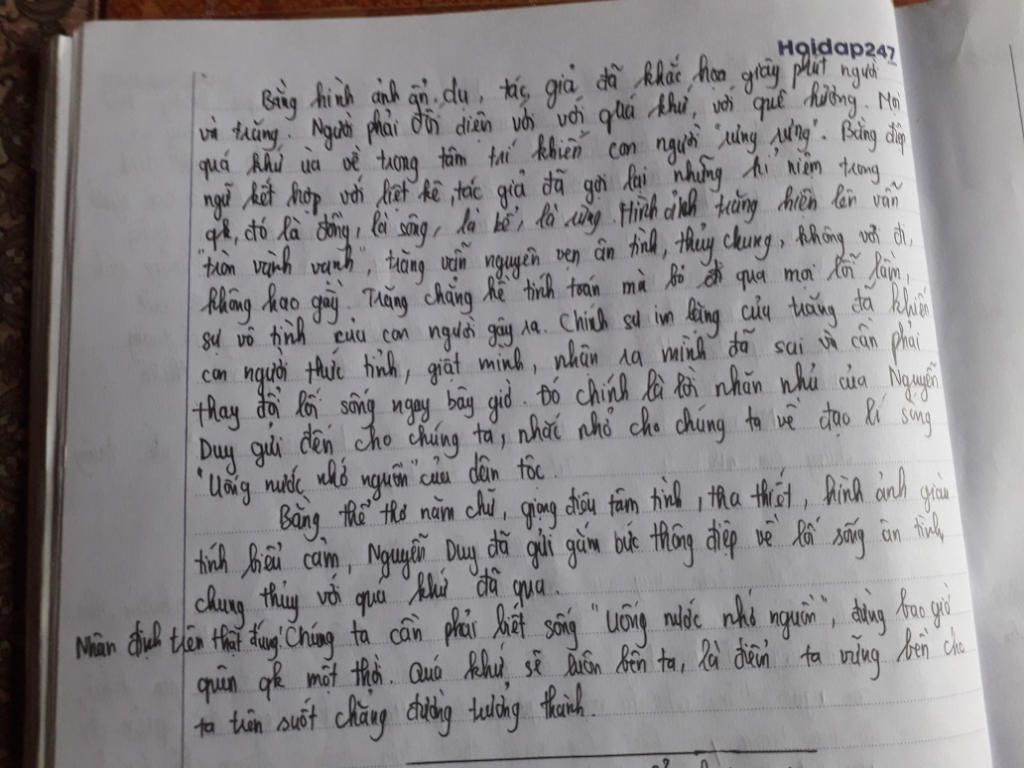 Hoidap247
Bằng hình ảnh ẩn dụ, tác giả đã khắc họa giây phút người
và trăng. Người phải đối diện với với quá khứ, với quê hương. Mọi
quá khứ ùa về trong tâm trí khiến con người "rưng rưng". Bằng điệp
ngữ kết hợp với liệt kê, tác giả đã gợi lại những kỉ niệm trong
qk, đó là đồng, là sông, là bể, là rừng. Hình ảnh trăng hiện lên vẫn
"tròn vành vạnh", trăng vẫn nguyên vẹn ân tình, thủy chung, không vơi đi,
không hao gầy. Trăng chẳng hề tính toán mà bỏ đi qua mọi lỗi lầm,
sự vô tình của con người gây ra. Chính sự im lặng của trăng đã khiến
con người thức tỉnh, giật mình, nhận ra mình đã sai và cần phải
thay đổi lối sống ngay bây giờ. Đó chính là lời nhắn nhủ của Nguyễn
Duy gửi đến cho chúng ta, nhắc nhở cho chúng ta về đạo lí sống
"Uống nước nhớ nguồn" của dân tộc.
Bằng thể thơ năm chữ, giọng điệu tâm tình, tha thiết, hình ảnh giàu
tính biểu cảm, Nguyễn Duy đã gửi gắm bức thông điệp về lối sống ân tình,
chung thủy với quá khứ đã qua.
Nhận định trên thật đúng! Chúng ta cần phải biết sống "Uống nước nhớ nguồn", đừng bao giờ
quên qk một thời. Quá khứ sẽ luôn bên ta, là điểm ta vững bền cho
ta trên suốt chặng đường trưởng thành.